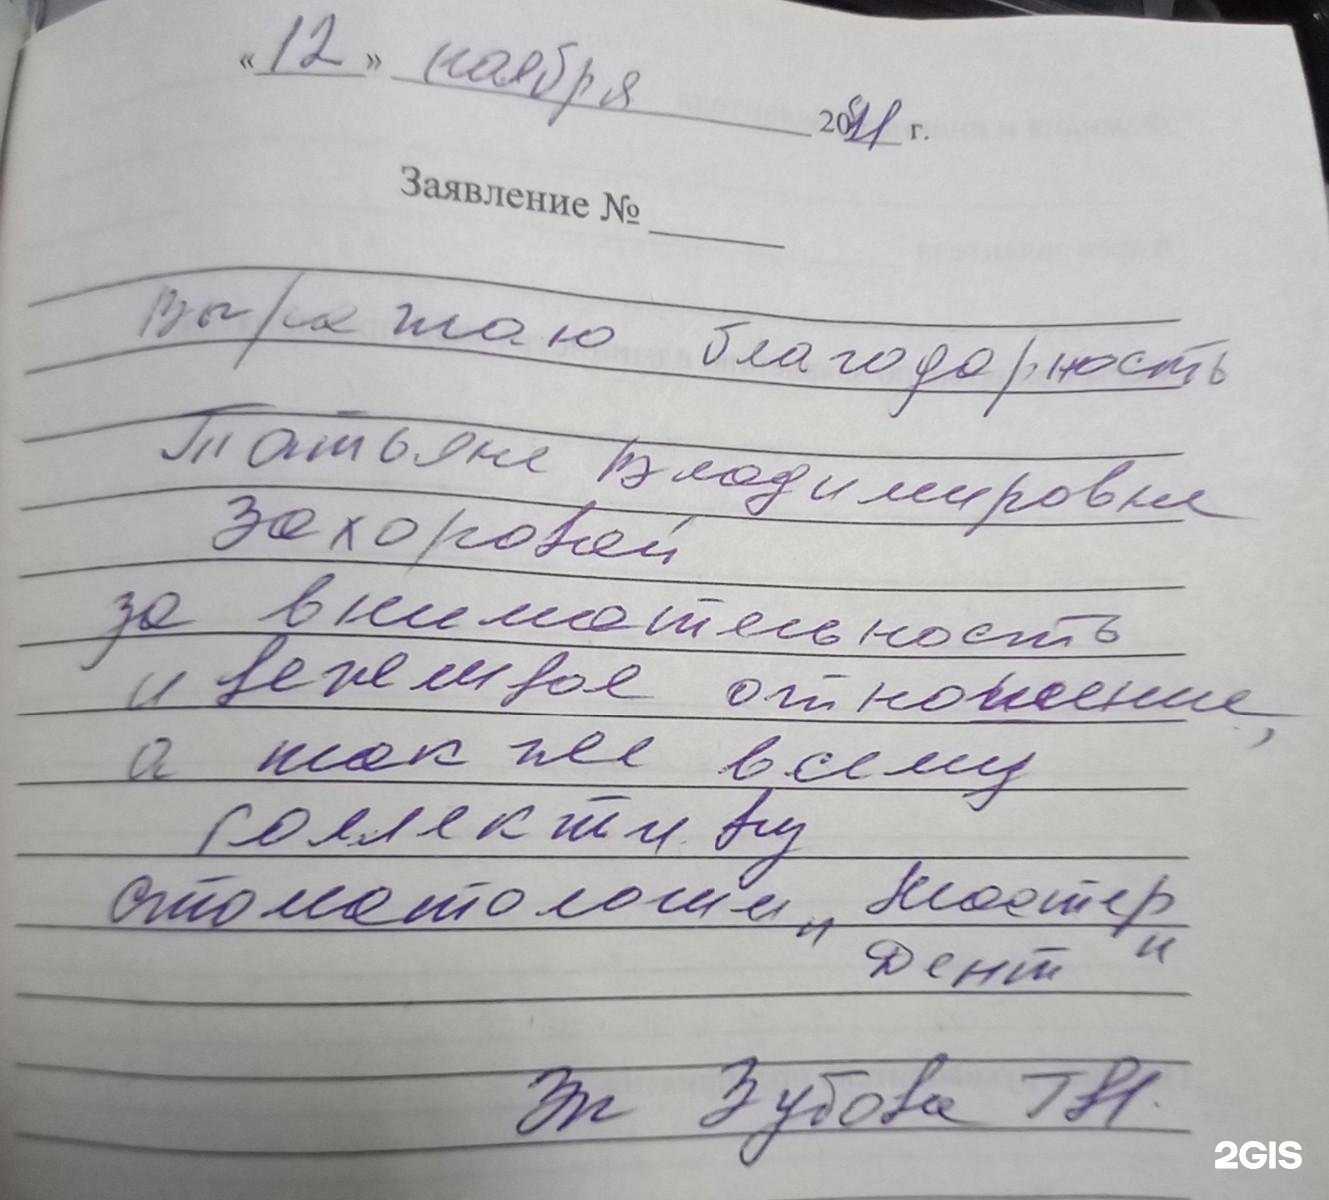 «12» ноября 2021 г.
Заявление №
Выражаю благодарность
Татьяне Владимировне
Захаровой
за внимательность
и вежливое отношение,
а также всему
коллективу
стоматологии „Мастер
Дент"
Зубова Т
2GIS